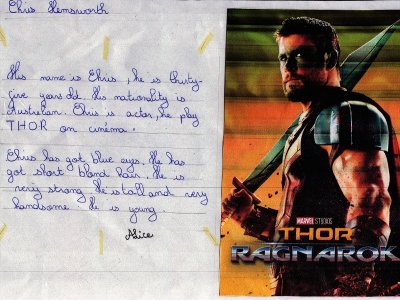 Chris Hemsworth
His name is Chris, he is thirty-
five years old. His nationality is
Australian. Chris is actor, he play
THOR on cinéma.
Chris has got blue eyes. He has
got short blond hair. He is
very strong. He is tall and very
handsome. He is young
Alice
MARVEL STUDIOS
THOR
RAGNAROK